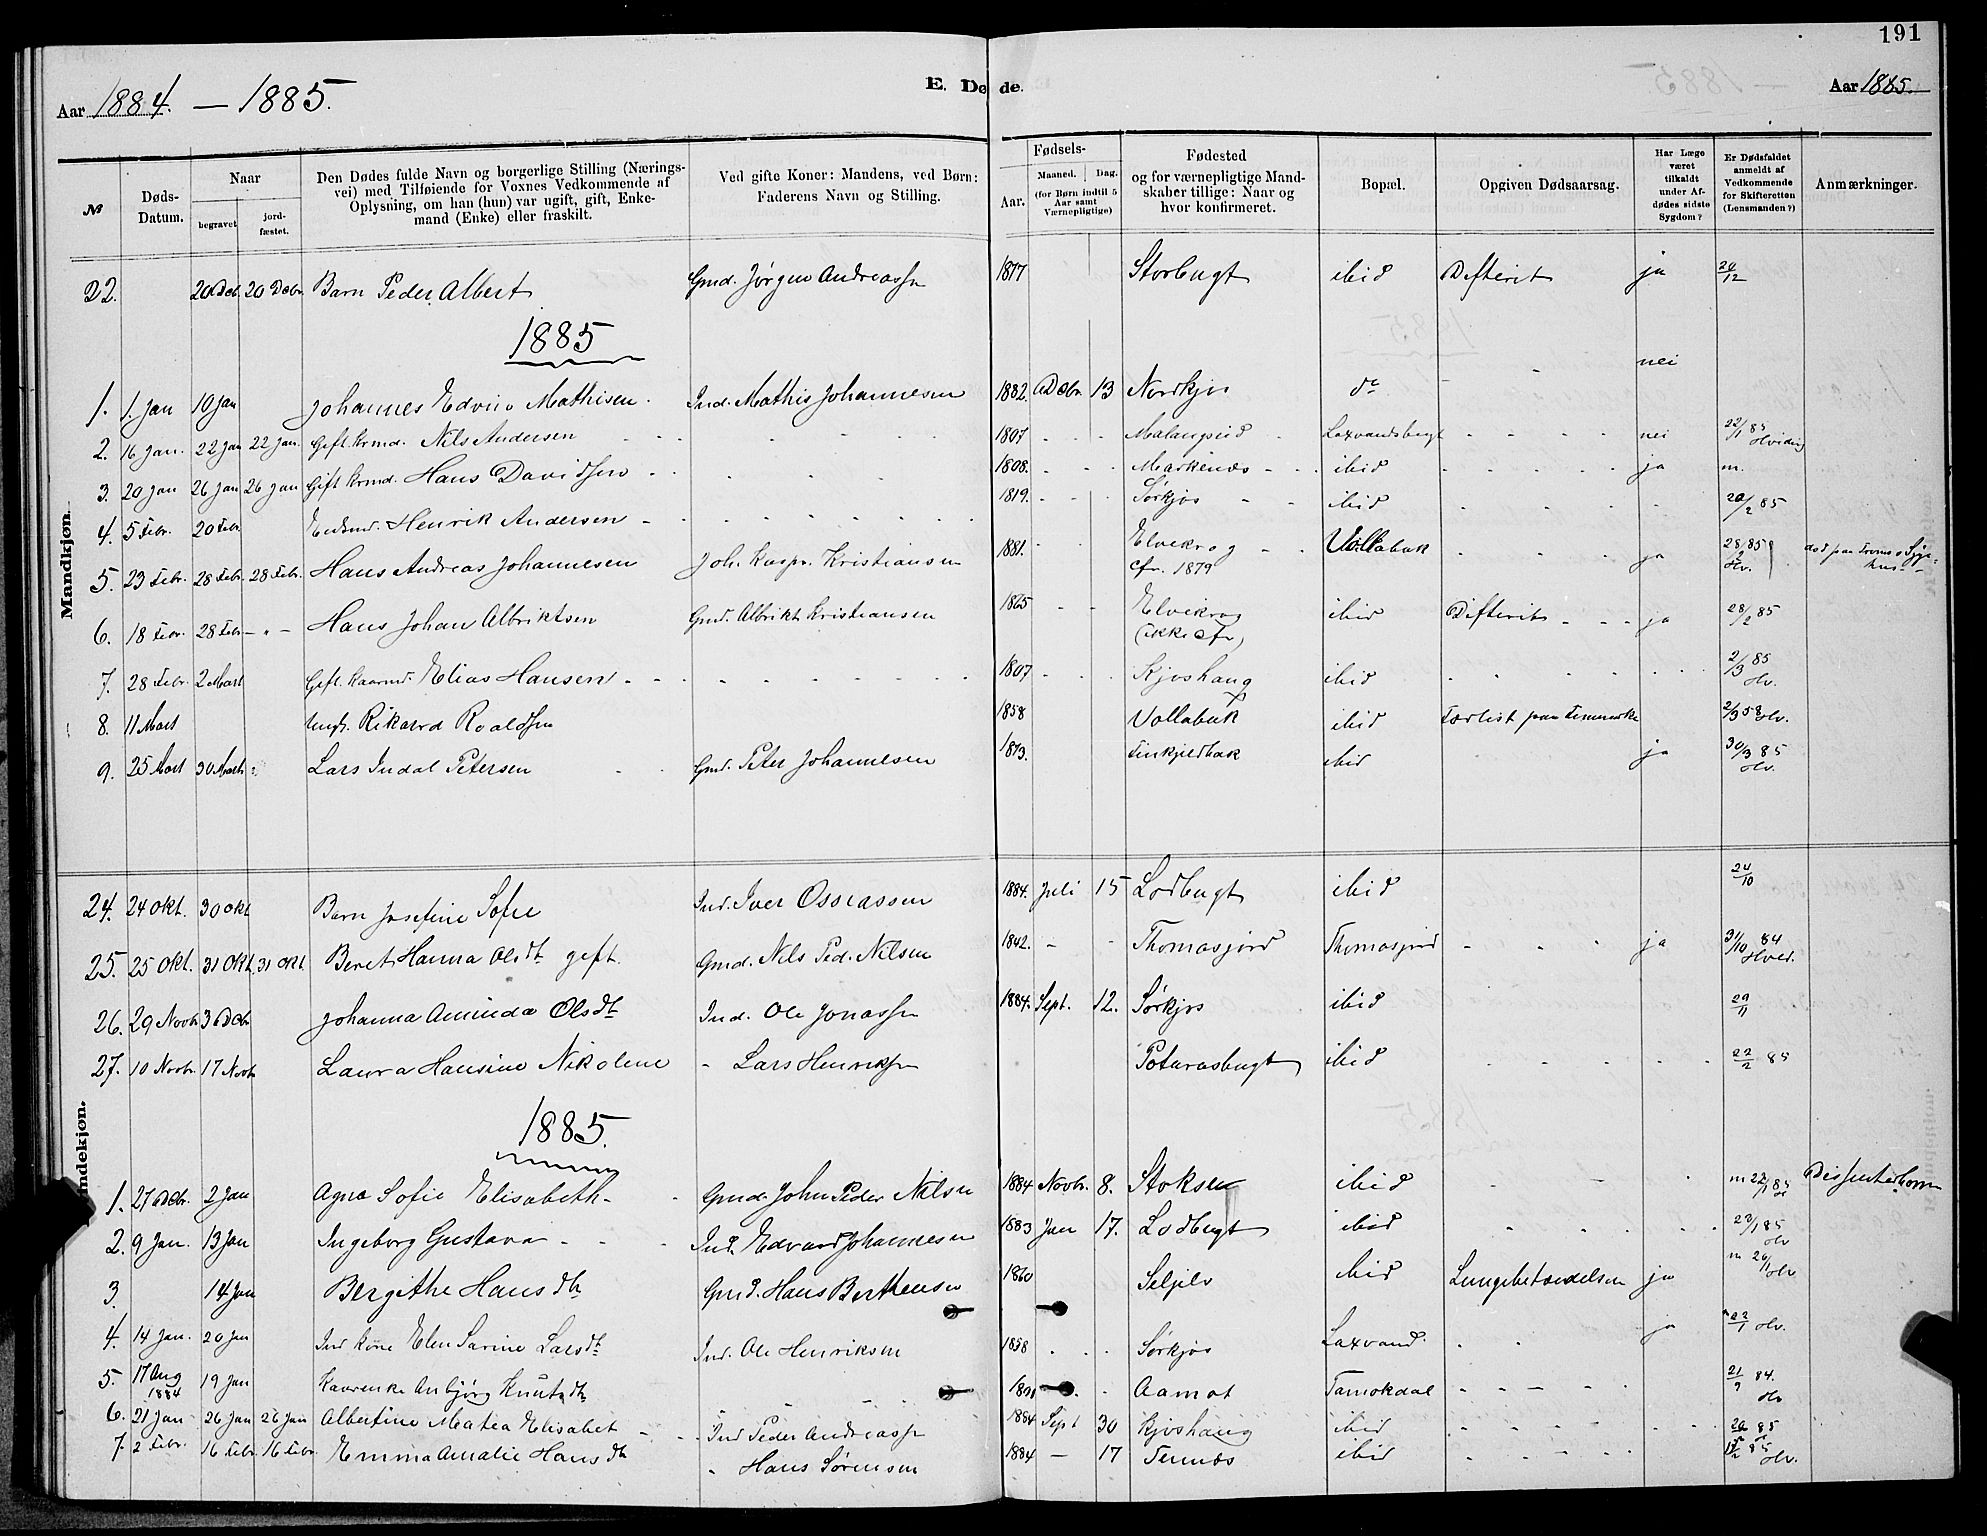 191
Aar 1884. — 1885.
E. Døde.
Aar 1885.
№
Døds-Datum.
Naar
begravet
jord-fæstet.
Den Dødes fulde Navn og borgerlige Stilling (Nærings-
vei) med Tilføiende for Voxnes Vedkommende af
Oplysning, om han (hun) var ugift, gift, Enke-
mand (Enke) eller fraskilt.
Ved gifte Koner: Mandens, ved Børn:
Faderens Navn og Stilling.
Fødsels-
Aar.
Maaned.
Dag.
(for Børn indtil 5
Aar samt
Værnepligtige)
Fødested
og for værnepligtige Mand-
skaber tillige: Naar og
hvor konfirmeret.
Bopæl.
Opgiven Dødsaarsag.
Har Læge
været
tilkaldt
under Af-
dødes sidste
Sygdom?
Er Dødsfaldet
anmeldt af
Vedkommende
for Skifteretten
(Lensmanden?)
Anmærkninger.
Mandkjøn.
22. 20 Dcb. 20 Dcbr. Barn Peder Albert Gmd. Jørgen Andreassn 1877 Storbugt ibid Difterit ja 24/12
1885
1. 1. Jan 10 Jan Johannes Edvin Mathisen. Ind. Mathis Johannesen 1882. Dcbr. 13 Nordkjos do - - nei
2. 16 Jan. 22 Jan 22 Jan. Gift Krmd. Nils Andersen 1807 Malangseid Laxvandsbugt nei 22/1 85
3. 20 Jan 26 Jan 26 Jan Gift Krmd. Hans Davidsen 1808. Markenes ibid ja m.
4. 5 Febr. 20 Febr. Henrik Andersen 1819. Sørkjos ibid 20/2 85
5. 23 Febr. 28 Febr. 28 Febr. Hans Andreas Johannesen Joh. Kaspr. Kristiansen 1881. Elvekrog Vollabak ja 28/2 85 Hv. død paa Tromsø Syge-
cfr. 1879 hus -
6. 18 Febr. 28 Febr - " - Hans Johan Albriktsen Gmd. Albrikt Kristiansen 1865 Elvekrog ibid Difterit ja 28/2 85
(ikke cfr)
7. 28 Febr. 2 Mart Gift. Kaarmd. Elias Hansen 1807 Kjoshaug ibid 2/3 85 Hv.
8. 11 Mart Ungk. Rikard Roaldsen 1858 Vollabak ibid Forlist paa Finmarke
9. 25 Mart 30 Marts Lars Indal Petersen Gmd. Peter Johannesen 1873. ibid ja 30/3 85 Hv.
Kvindekjøn.
24. 24 Okt. 30 Okt Barn Josefine Sofie Ind. Iver Osseassen 1884. Juli 15 Lodbugt ibid 24/10
25. 25 Okt. 31 Okt. 31 Okt. Beret Hanna Olsdt. gift. Gmd. Nils Ped. Nilsen 1842. - - Thomasjord Thomasjord ja 31/10 84
26. 29 Novbr 3 Dcbr Johanna Aminda Olsdt Ind. Ole Jonassn 1884. Sept. 12. Sørkjos ibid 29/11
27. 10 Novbr. 17 Novb Laura Hansine Nikoline - Lars Henriksn Potarasbugt ibid 22/2 85
1885.
1. 27 Dcbr. 2 Jan Agna Sofie Elisabeth Gmd. John Peder Nilsen 1884 Novbr. 8. Stoksen ibid Dissenterbarn
2. 9 Jan. 13 Jan Ingeborg Gustava Ind. Edvard Johannesen 1883 Jan 17. Lodbugt ibid
3. 14 Jan Bergithe Hansdtr Gmd. Hans Berthensen 1860 Seljelv ibid Lungebetændelsen ja
4. 14 Jan. 20 Jan Ind Kone Elen Sarine Larsdt Ind. Ole Henriksen 1858 Sørkjos Laxvand. ja 22/1 Hv.
5. 17 Aug 1884 19 Jan Anbjørg Knutsdtr Aamot Tamokdal 21/9 84.
6. 21 Jan 26 Jan 26 Jan Albertine Matea Elisabet Ind Peder Andreassn 1884 Sept 30 Kjoshaug ibid
7. 2 Febr. 16 Febr. 16 Febr. Emma Amalie Hansdtr " Hans Sørensen 1884 — 17 Tennes ibid